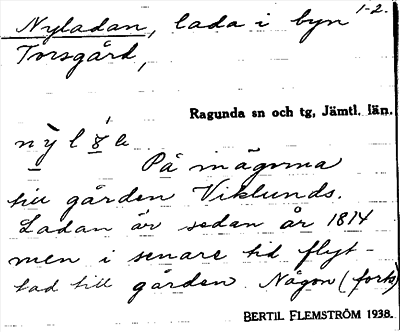 Nyladan, lada i byn 1-2.
Torsgård,
Ragunda sn och tg, Jämtl. län.
På inägorna
till gården Viklunds.
Ladan är sedan år 1814
men i senare tid flyt-
tad till gården. Någon (forts)
BERTIL FLEMSTRÖM 1938.